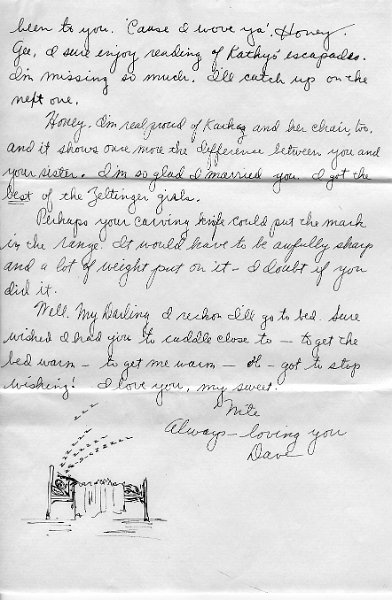 been to you. 'Cause I wove ya', Honey.
Gee, I sure enjoy reading of Kathy's escapades.
I'm missing so much. I'll catch up on the
next one.
Honey, I'm real proud of and her chair, too,
and it shows once more the difference between you and
your sister. I'm so glad I married you. I got the
best of the Zeltinger girls.
Perhaps your carving knife could put the mark
in the range. It would have to be awfully sharp
and a lot of weight put on it - I doubt if you
did it.
Well, My Darling, I reckon I'll go to bed. Sure
wished I had you to cuddle close to - to get the
bed warm - to get me warm - oh - got to stop
wishing! I love you, my sweet.
'Nite
Always - loving you
Dave